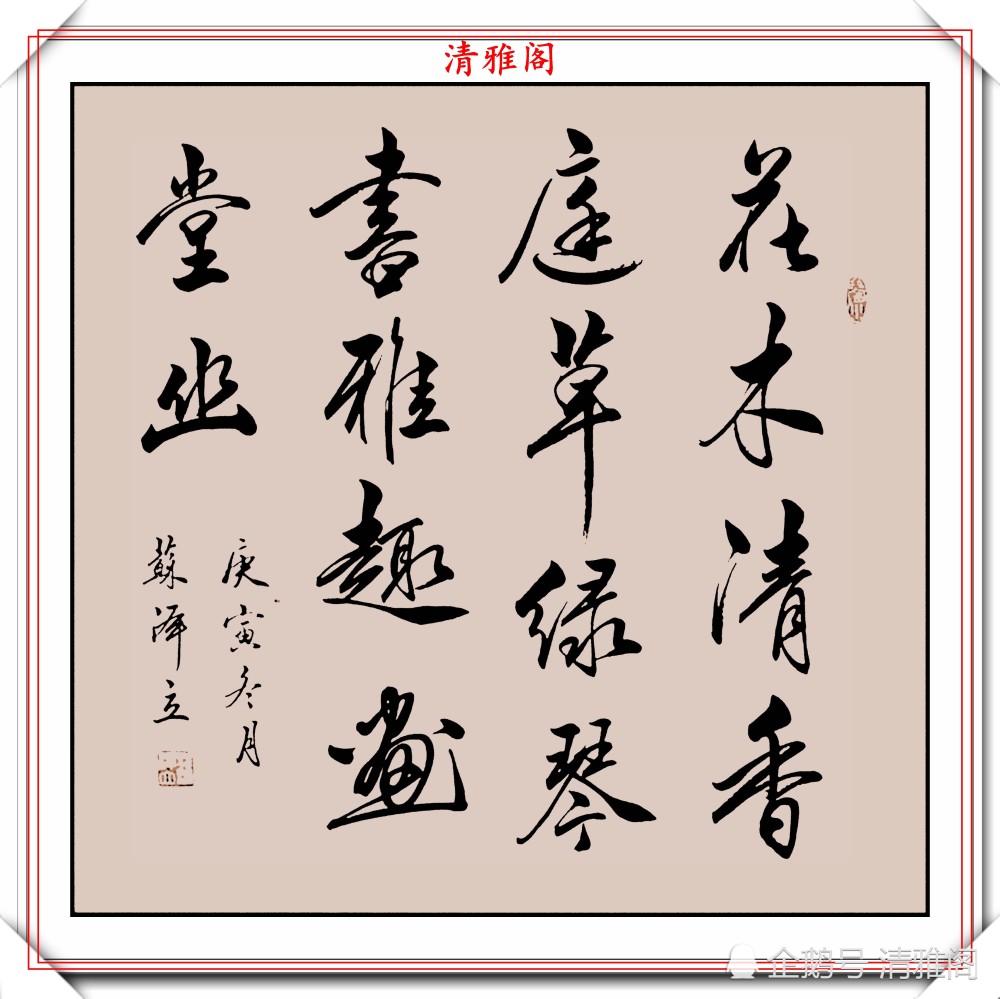 清雅阁
花木清香
庭草绿琴
书雅趣画
堂幽
庚寅冬月
蘇泽立
企鹅号 清雅阁